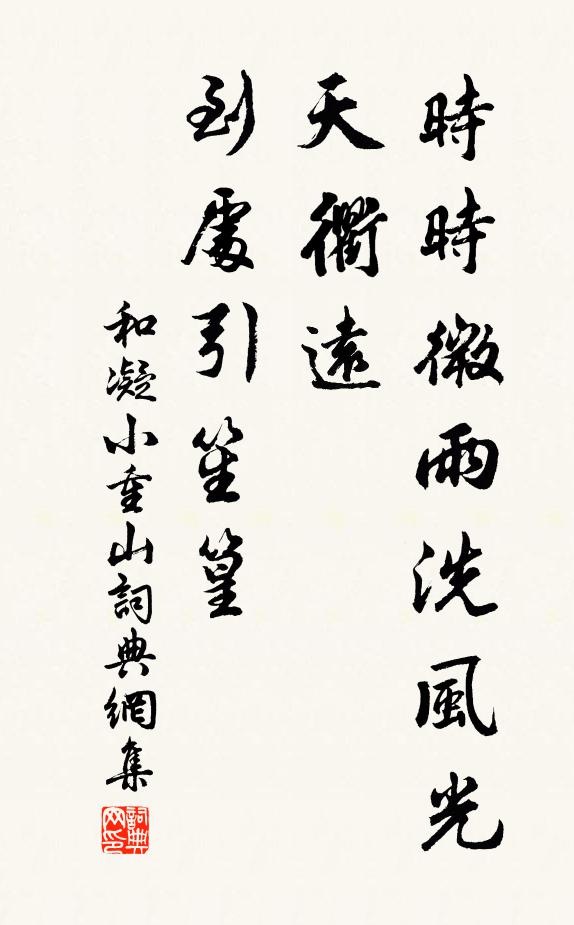 時時微雨洗風光
天衢遠
到處引笙篁
和凝小重山詞典網集
詞典网印